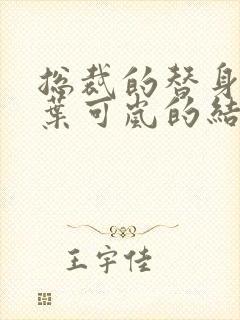 总裁的替身
葉可嵐的結
王宇佳